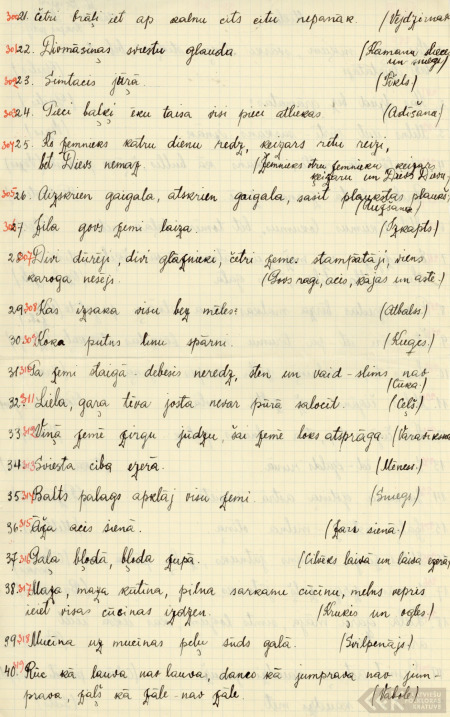 300 21. četri brāļi iet ap kalnu cits citu nepanāk. (Vējdzirnavas
301 22. Divmāsiņas sviestu glauda (Kamanu slieces
un sniegs)
302 23. Simtacis jūrā. (Tīkls)
303 24. Pieci baļķi ēku taisa visi pieci atliekas (Adīšana)
304 25. Ko zemnieks katru dienu redz, ķeizars retu reizi,
bet Dievs nemaz (Zemnieks otru zemnieku ķeizars
ķeizaru un Dievs Dievu)
305 26. Aizskrien gaigala, atskrien gaigala, sasit plaukstas
(Aušana)
306 27. Zila govs zemi laiza. (Izkapts)
28. 307 Divi dūrēji, divi glaznieki, četri zemes stampātāji, viens
karoga nesējs. (Govs ragi, acis, kājas un aste.)
29. 308 Kas izsaka visu bez mēles? (Atbalss)
30. 309 Koka putns linu spārni. (Kuģis)
31. 310 Pa zemi staigā - debesis neredz, sten un vaid - slims nav
(Cūka.)
32. 311 Liela, gaŗa tīva josta nevar pūrā salocīt (Ceļš)
33. 312 Viņā zemē zirgu jūdzu, šai zemē loks atsprāga (Varavīksna
34. 313 Sviesta ciba ezerā. (Mēness)
35. 314 Balts palags apklāj visu zemi. (Sniegs)
36. 315 Āža acis sienā. (Zari sienā.)
37. 316 Gaļa bļodā, bļoda zupā. (Cilvēks laivā un laiva ezerā)
38. 317 Maza, maza kūtiņa, pilna sarkanu cūciņu, melns vepris
ieiet visas cūciņas izdzen. (Kruķis un ogles)
39. 318 Muciņa uz muciņas peļu sūds galā. (Svilpenājs)
40. 319 Rūc kā lauva nav lauva, danco kā jumprava nav jum-
prava, zaļš kā zāle - nav zāle. (Vabole)
LATVIEŠU
FOLKLORAS
KRĀTUVE